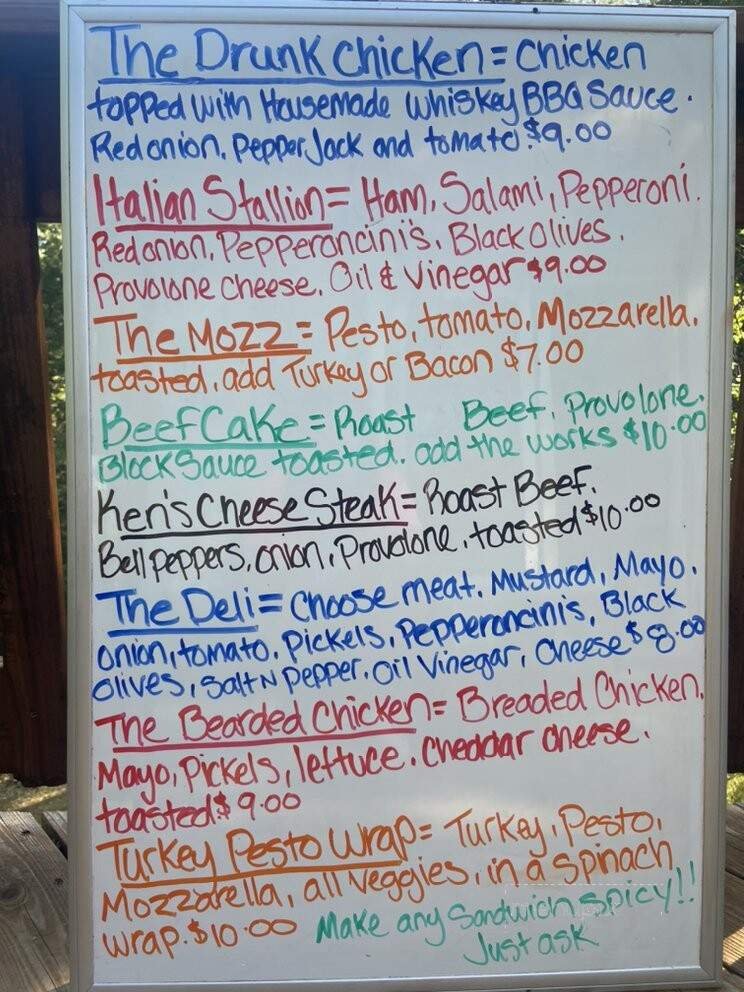 The Drunk Chicken = Chicken
topped with Housemade Whiskey BBQ Sauce.
Red onion, Pepper Jack and tomato. $9.00
Italian Stallion = Ham, Salami, Pepperoni.
Red onion, Pepperoncini's, Black Olives.
Provolone cheese, Oil & Vinegar $9.00
The Mozz = Pesto, tomato, Mozzarella,
toasted, add Turkey or Bacon $7.00
Beef Cake = Roast Beef, Provolone,
Block Sauce toasted. add the works $10.00
Ken's Cheese Steak = Roast Beef,
Bell peppers, onion, Provolone, toasted $10.00
The Deli = Choose meat. Mustard, Mayo,
onion, tomato, Pickels, Pepperoncinis, Black
olives, Salt N Pepper, Oil Vinegar, Cheese $8.00
The Bearded Chicken = Breaded Chicken,
Mayo, Pickels, lettuce, Cheddar cheese.
toasted $9.00
Turkey Pesto Wrap = Turkey, Pesto,
Mozzarella, all Veggies, in a Spinach
wrap. $10.00 Make any Sandwich Spicy!!
Just ask